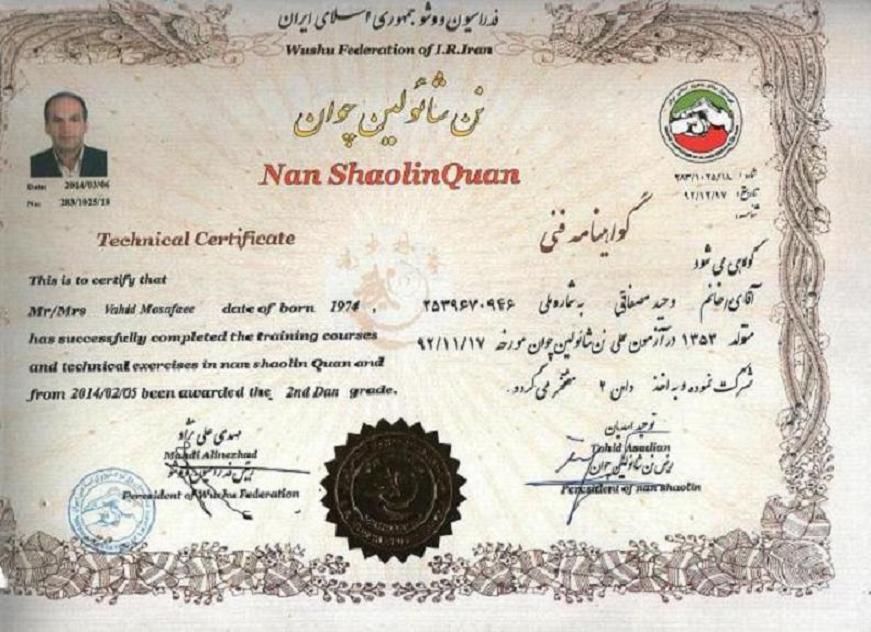 فدراسیون ووشو جمهوری اسلامی ایران
Wushu Federation of I.R.Iran
نن شائولین چوان
Nan ShaolinQuan
Date: 2014/03/06
No: 283/1025/18
شماره: ۲۸۳/۱۰۲۵/۱۸
تاریخ: ۹۲/۱۲/۹۷
گواهینامه فنی
Technical Certificate
This is to certify that
Mr/Mrs Vahid Mosafaee date of born 1974 .
has successfully completed the training courses
and technical exercises in nan shaolin Quan and
from 2014/02/05 been awarded the 2nd Dan grade.
گواهی می شود
آقای/خانم وحید مصفائی به شماره ملی ۲۵۳۹۶۷۰۹۴۶
متولد ۱۳۵۳ در آزمون علی نن شائولین چوان مورخه ۹۲/۱۱/۱۷
شرکت نموده و به اخذ دان ۲ مفتخر می گردد.
مهدی علی نژاد
Mahdi Alinezhad
رئیس فدراسیون ووشو
Peresident of Wushu Federation
توحید اسدیان
Tohid Asadian
رئیس نن شائولین چوان
Peresident of nan shaolin